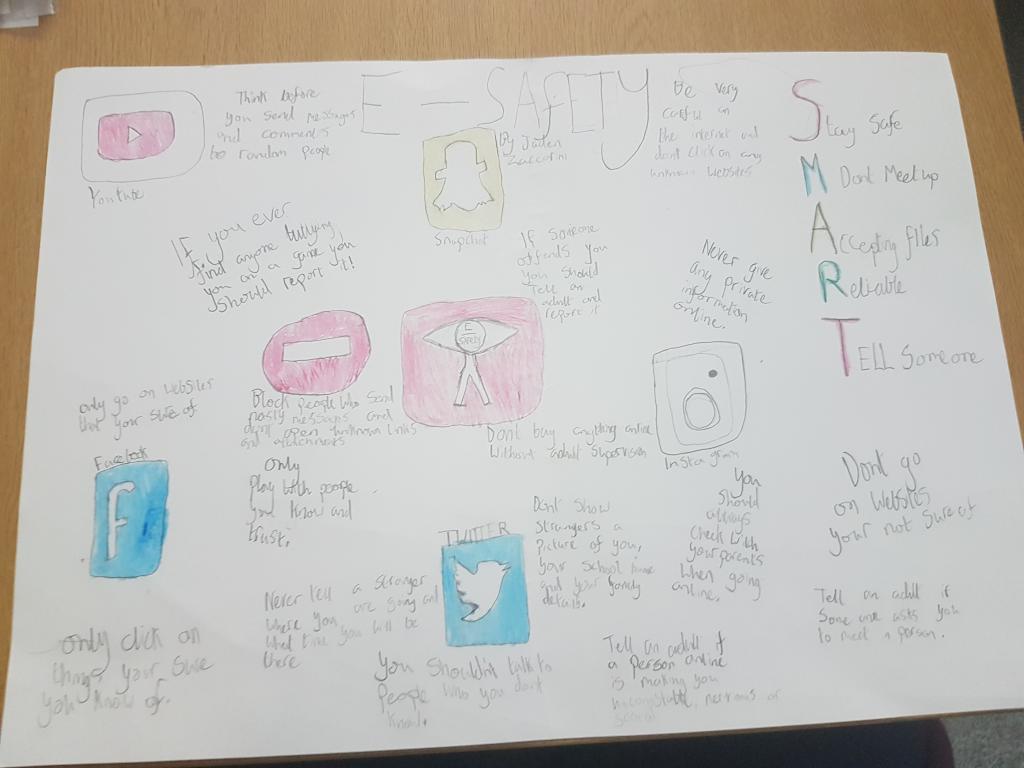 E - SAFETY
By Jaden
Zaccorini
Think before
you send messages
and comments
to random people
Youtube
Snapchat
Be very
careful on
the internet and
dont click on any
unknown websites
Stay Safe
Dont Meet up
Accepting files
Reliable
TELL Someone
IF you ever
find anyone bullying
you on a game you
should report it!
If someone
offends you
you should
Tell an
adult and
report it
Never give
any private
information
online.
only go on websites
that your sure of
Block people who send
nasty messages and
dont open unknown links
and attachments
E
SAFETY
Dont buy anything online
without adult supervision
Instagram
Facebook
f
only
play with people
you know and
trust.
TWITTER
Dont show
strangers a
picture of you,
your school name
and your family
details.
You
should
always
check with
your parents
when going
online.
Dont go
on websites
your not sure of
Never tell a stranger
where you are going and
what time you will be
there
only click on
things your sure
you know of.
You shouldn't talk to
people who you dont
know.
Tell an adult if
a person online
is making you
uncomfortable, nervous or
scared
Tell an adult if
some one asks you
to meet a person.